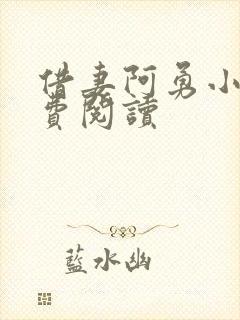 借妻阿勇小
費閱讀
藍水幽